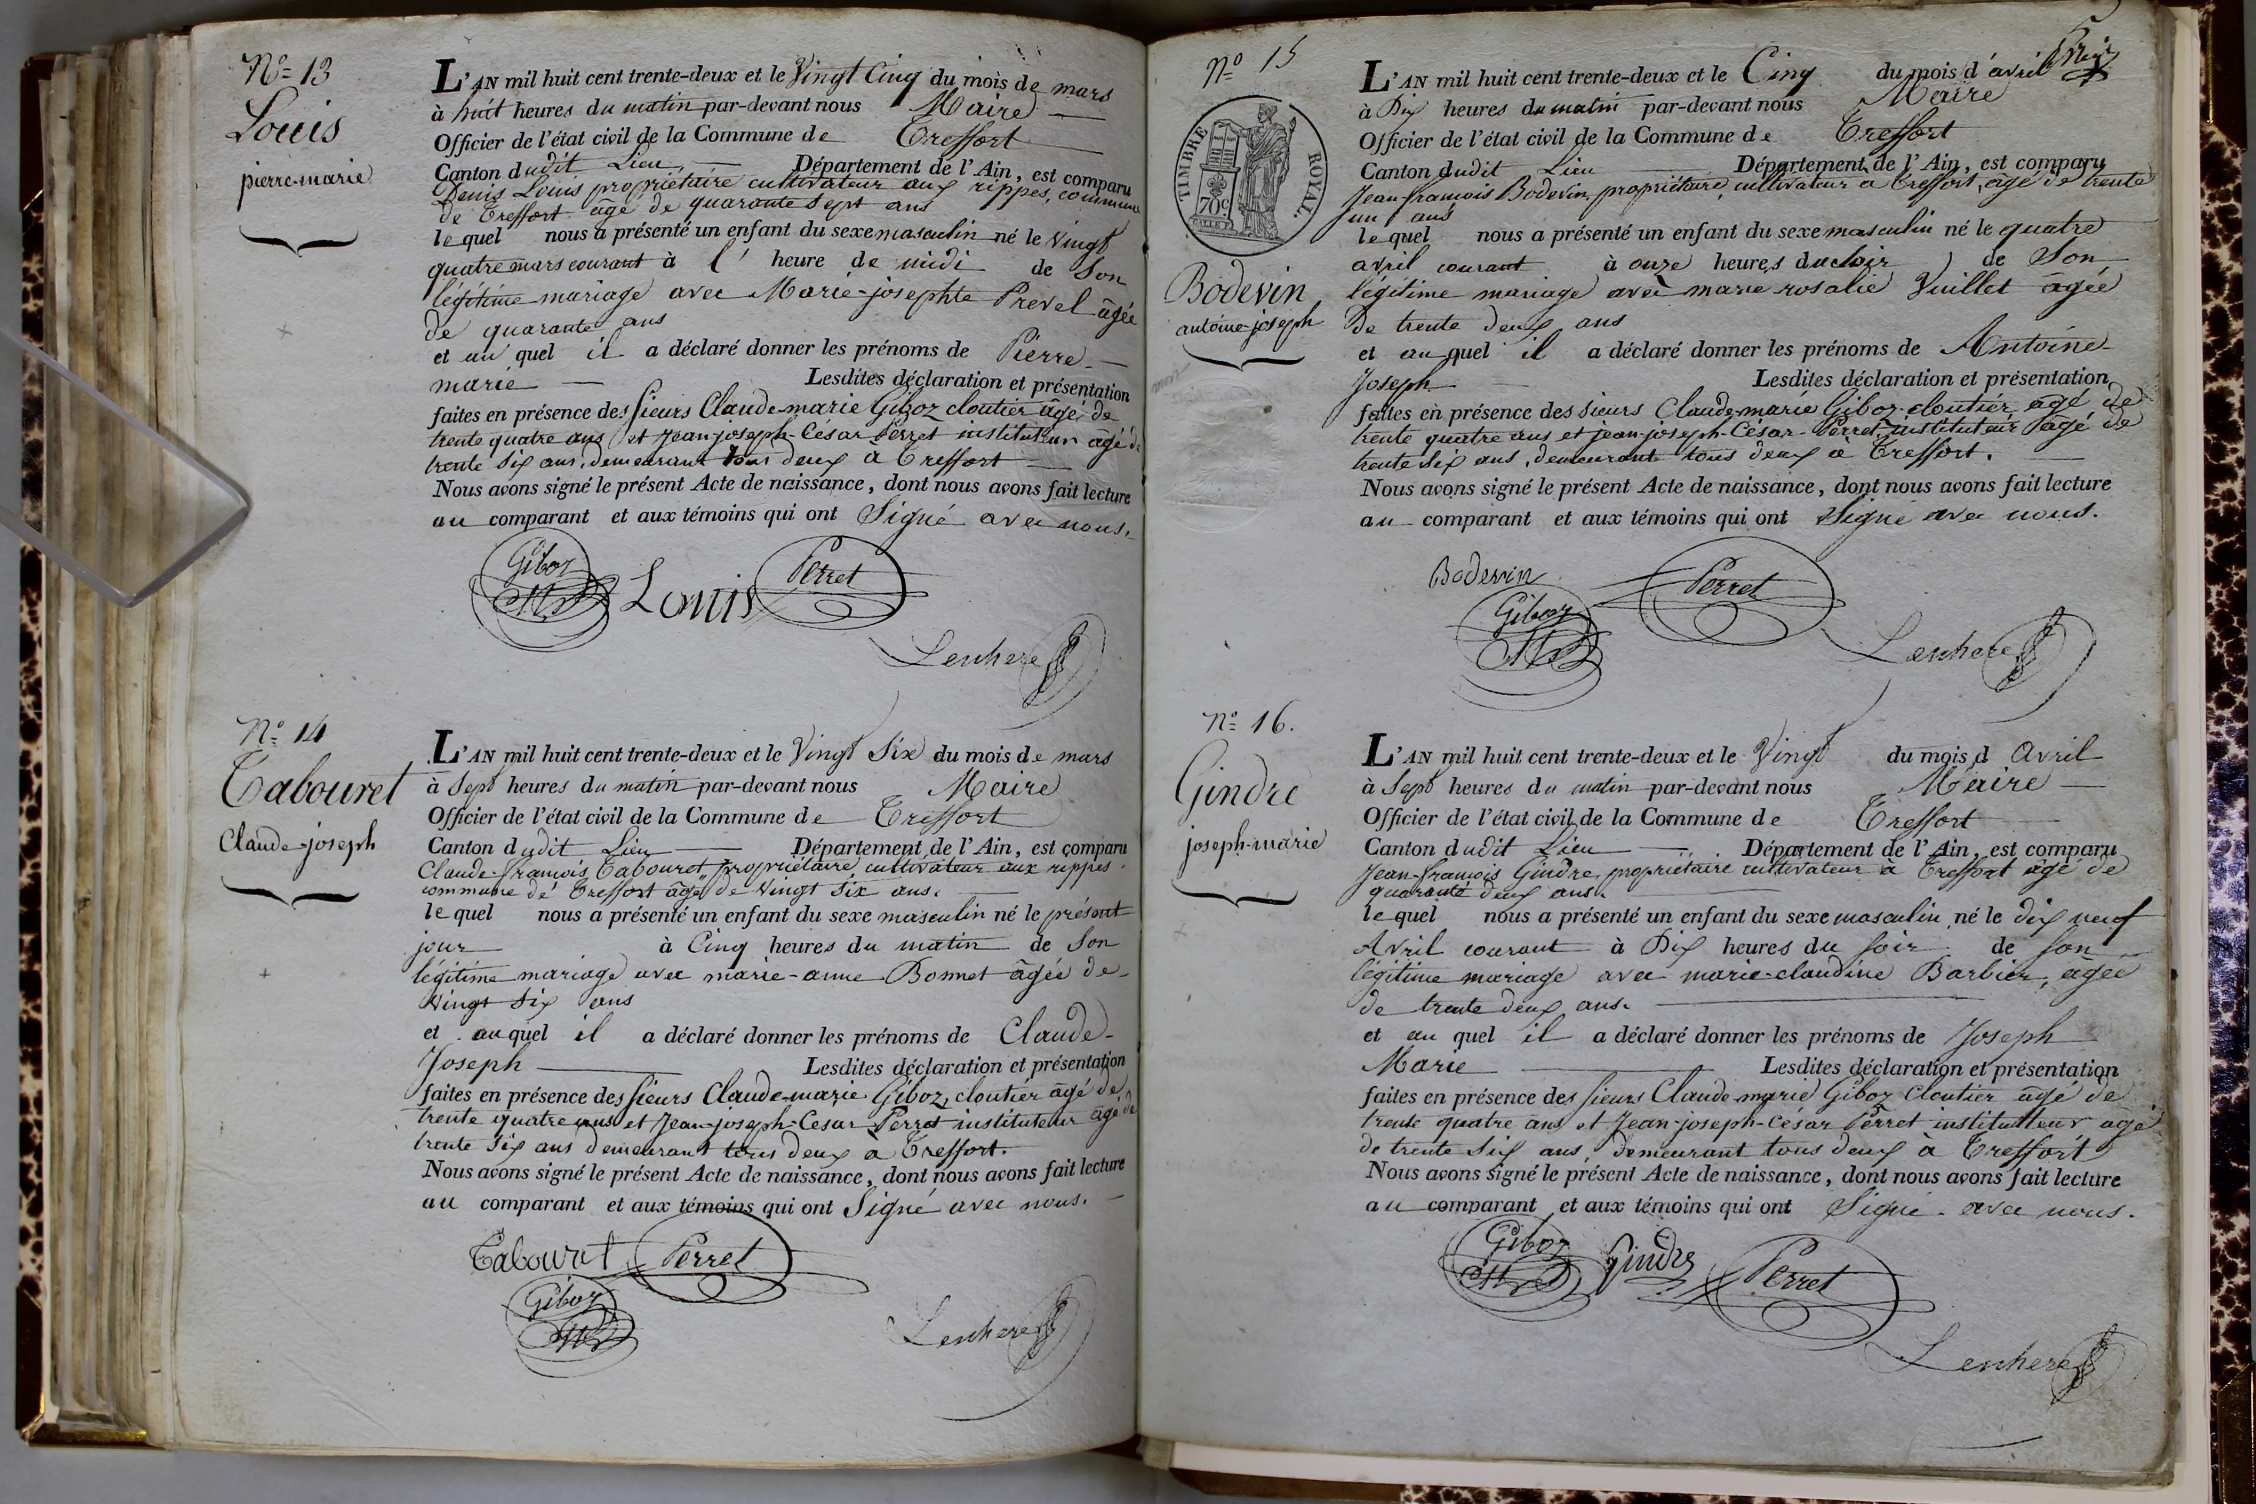 Nº 13
Louis
pierre-marie
L'AN mil huit cent trente-deux et le Vingt Cinq du mois de mars
à huit heures du matin par-devant nous Maire
Officier de l'état civil de la Commune de Treffort
Canton dudit Lieu Département de l'Ain, est comparu
Denis Louis propriétaire cultivateur aux rippes, commune
de Treffort âgé de quarante sept ans
lequel nous a présenté un enfant du sexe masculin né le vingt
quatre mars courant à l'heure de midi de Son
légitime mariage avec Marie-josephte Prevel âgée
de quarante ans
et au quel il a déclaré donner les prénoms de Pierre-
marie Lesdites déclaration et présentation
faites en présence des sieurs Claude-marie Giboz cloutier âgé de
trente quatre ans et Jean-joseph-César Perret instituteur âgé de
trente six ans, demeurant tous deux à Treffort
Nous avons signé le présent Acte de naissance, dont nous avons fait lecture
au comparant et aux témoins qui ont Signé avec nous.
Giboz Louis Perret
Lenhere
Nº 14
Tabouret
Claude-joseph
L'AN mil huit cent trente-deux et le Vingt Six du mois de mars
à Sept heures du matin par-devant nous Maire
Officier de l'état civil de la Commune de Treffort
Canton dudit Lieu Département de l'Ain, est comparu
Claude-françois Tabouret propriétaire cultivateur aux rippes
commune de Treffort âgé de Vingt six ans.
lequel nous a présenté un enfant du sexe masculin né le présent
jour à Cinq heures du matin de Son
légitime mariage avec marie-anne Bonnet âgée de
Vingt Six ans
et auquel il a déclaré donner les prénoms de Claude-
Joseph Lesdites déclaration et présentation
faites en présence des sieurs Claude-marie Giboz, cloutier âgé de
trente quatre ans et Jean-joseph-César Perret instituteur âgé de
trente six ans demeurant tous deux à Treffort.
Nous avons signé le présent Acte de naissance, dont nous avons fait lecture
au comparant et aux témoins qui ont Signé avec nous.
Tabouret Perret
Giboz
Lenhere
Nº 15
TIMBRE ROYAL
70c
Bodevin
antoine-joseph
L'AN mil huit cent trente-deux et le Cinq du mois d'avril
à Dix heures du matin par-devant nous Maire
Officier de l'état civil de la Commune de Treffort
Canton dudit Lieu Département de l'Ain, est comparu
Jean-françois Bodevin, propriétaire, cultivateur à Treffort, âgé de trente
un ans
lequel nous a présenté un enfant du sexe masculin né le quatre
avril courant à onze heures du soir de Son
légitime mariage avec marie-rosalie Vuillet âgée
De trente deux ans
et au quel il a déclaré donner les prénoms de Antoine-
Joseph Lesdites déclaration et présentation
faites en présence des sieurs Claude-marie Giboz cloutier âgé de
trente quatre ans et jean-joseph-César Perret instituteur âgé de
trente six ans, demeurant tous deux à Treffort.
Nous avons signé le présent Acte de naissance, dont nous avons fait lecture
au comparant et aux témoins qui ont Signé avec nous.
Bodevin Perret
Giboz
Lenhere
Nº 16.
Gindre
joseph-marie
L'AN mil huit cent trente-deux et le Vingt du mois d avril
à Sept heures du matin par-devant nous Maire
Officier de l'état civil de la Commune de Treffort
Canton dudit Lieu Département de l'Ain, est comparu
Jean-françois Gindre, propriétaire cultivateur à Treffort âgé de
quarante deux ans.
lequel nous a présenté un enfant du sexe masculin né le dix neuf
Avril courant à Dix heures du soir de son
légitime mariage avec marie-claudine Barbier, âgée
de trente deux ans.
et au quel il a déclaré donner les prénoms de Joseph
Marie Lesdites déclaration et présentation
faites en présence des sieurs Claude-marie Giboz Cloutier âgé de
trente quatre ans et Jean-joseph-César Perret instituteur âgé
de trente six ans, Demeurant tous deux à Treffort
Nous avons signé le présent Acte de naissance, dont nous avons fait lecture
au comparant et aux témoins qui ont Signé avec nous.
Giboz Gindre Perret
Lenhere